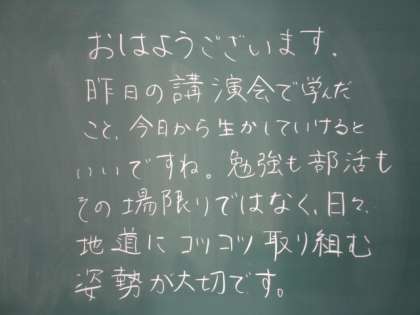 おはようございます.
昨日の講演会で学んだ
こと、今日から生かしていけると
いいですね。勉強も部活も
その場限りではなく、日々、
地道にコツコツ取り組む
姿勢が大切です。